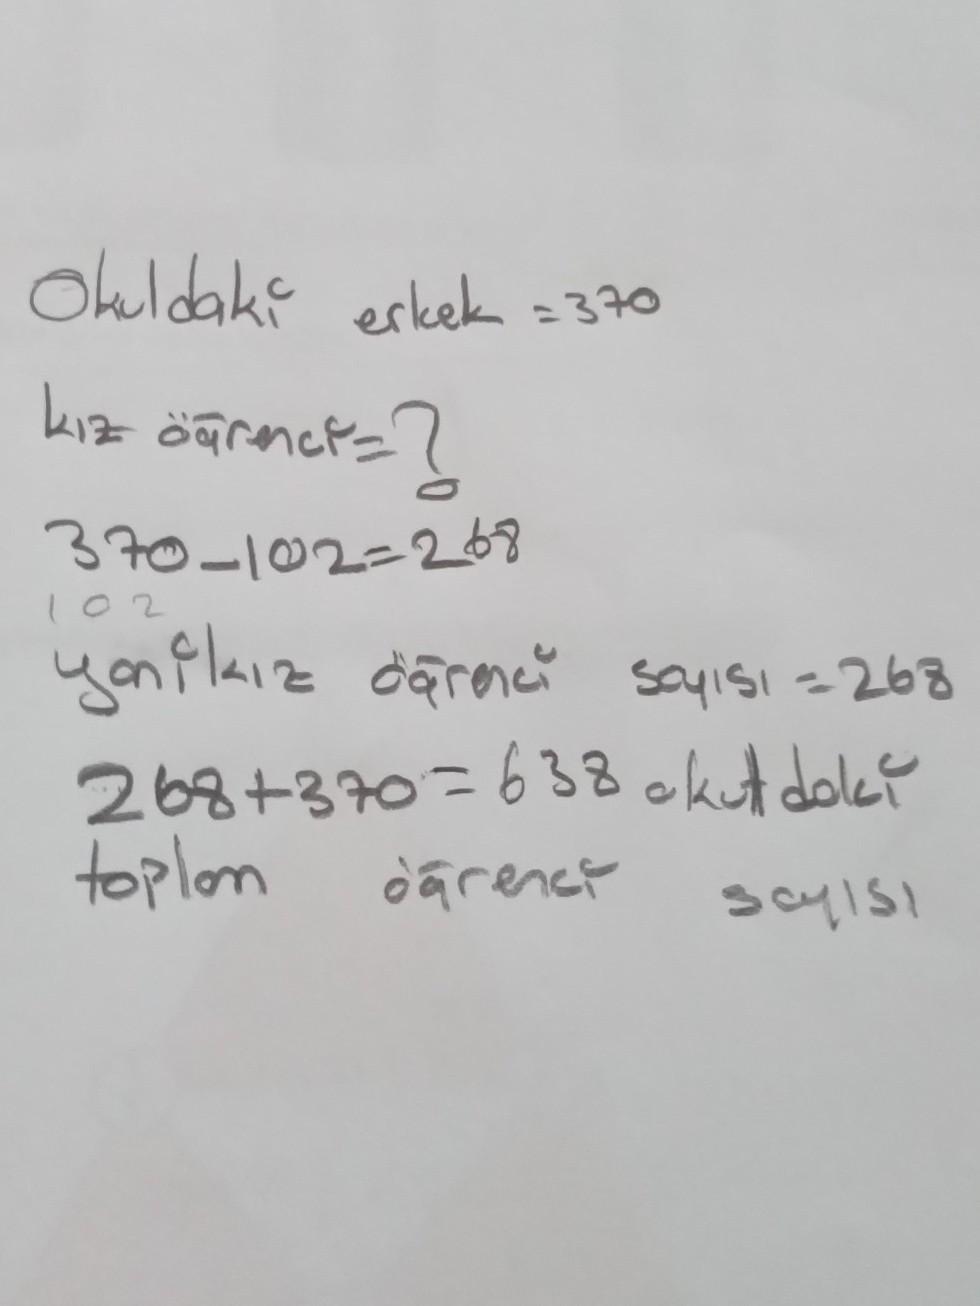 Okuldaki erkek = 370
kız öğrenci = ?
370 - 102 = 268
102
yani kız öğrenci sayısı = 268
268 + 370 = 638 okuldaki
toplam öğrenci sayısı